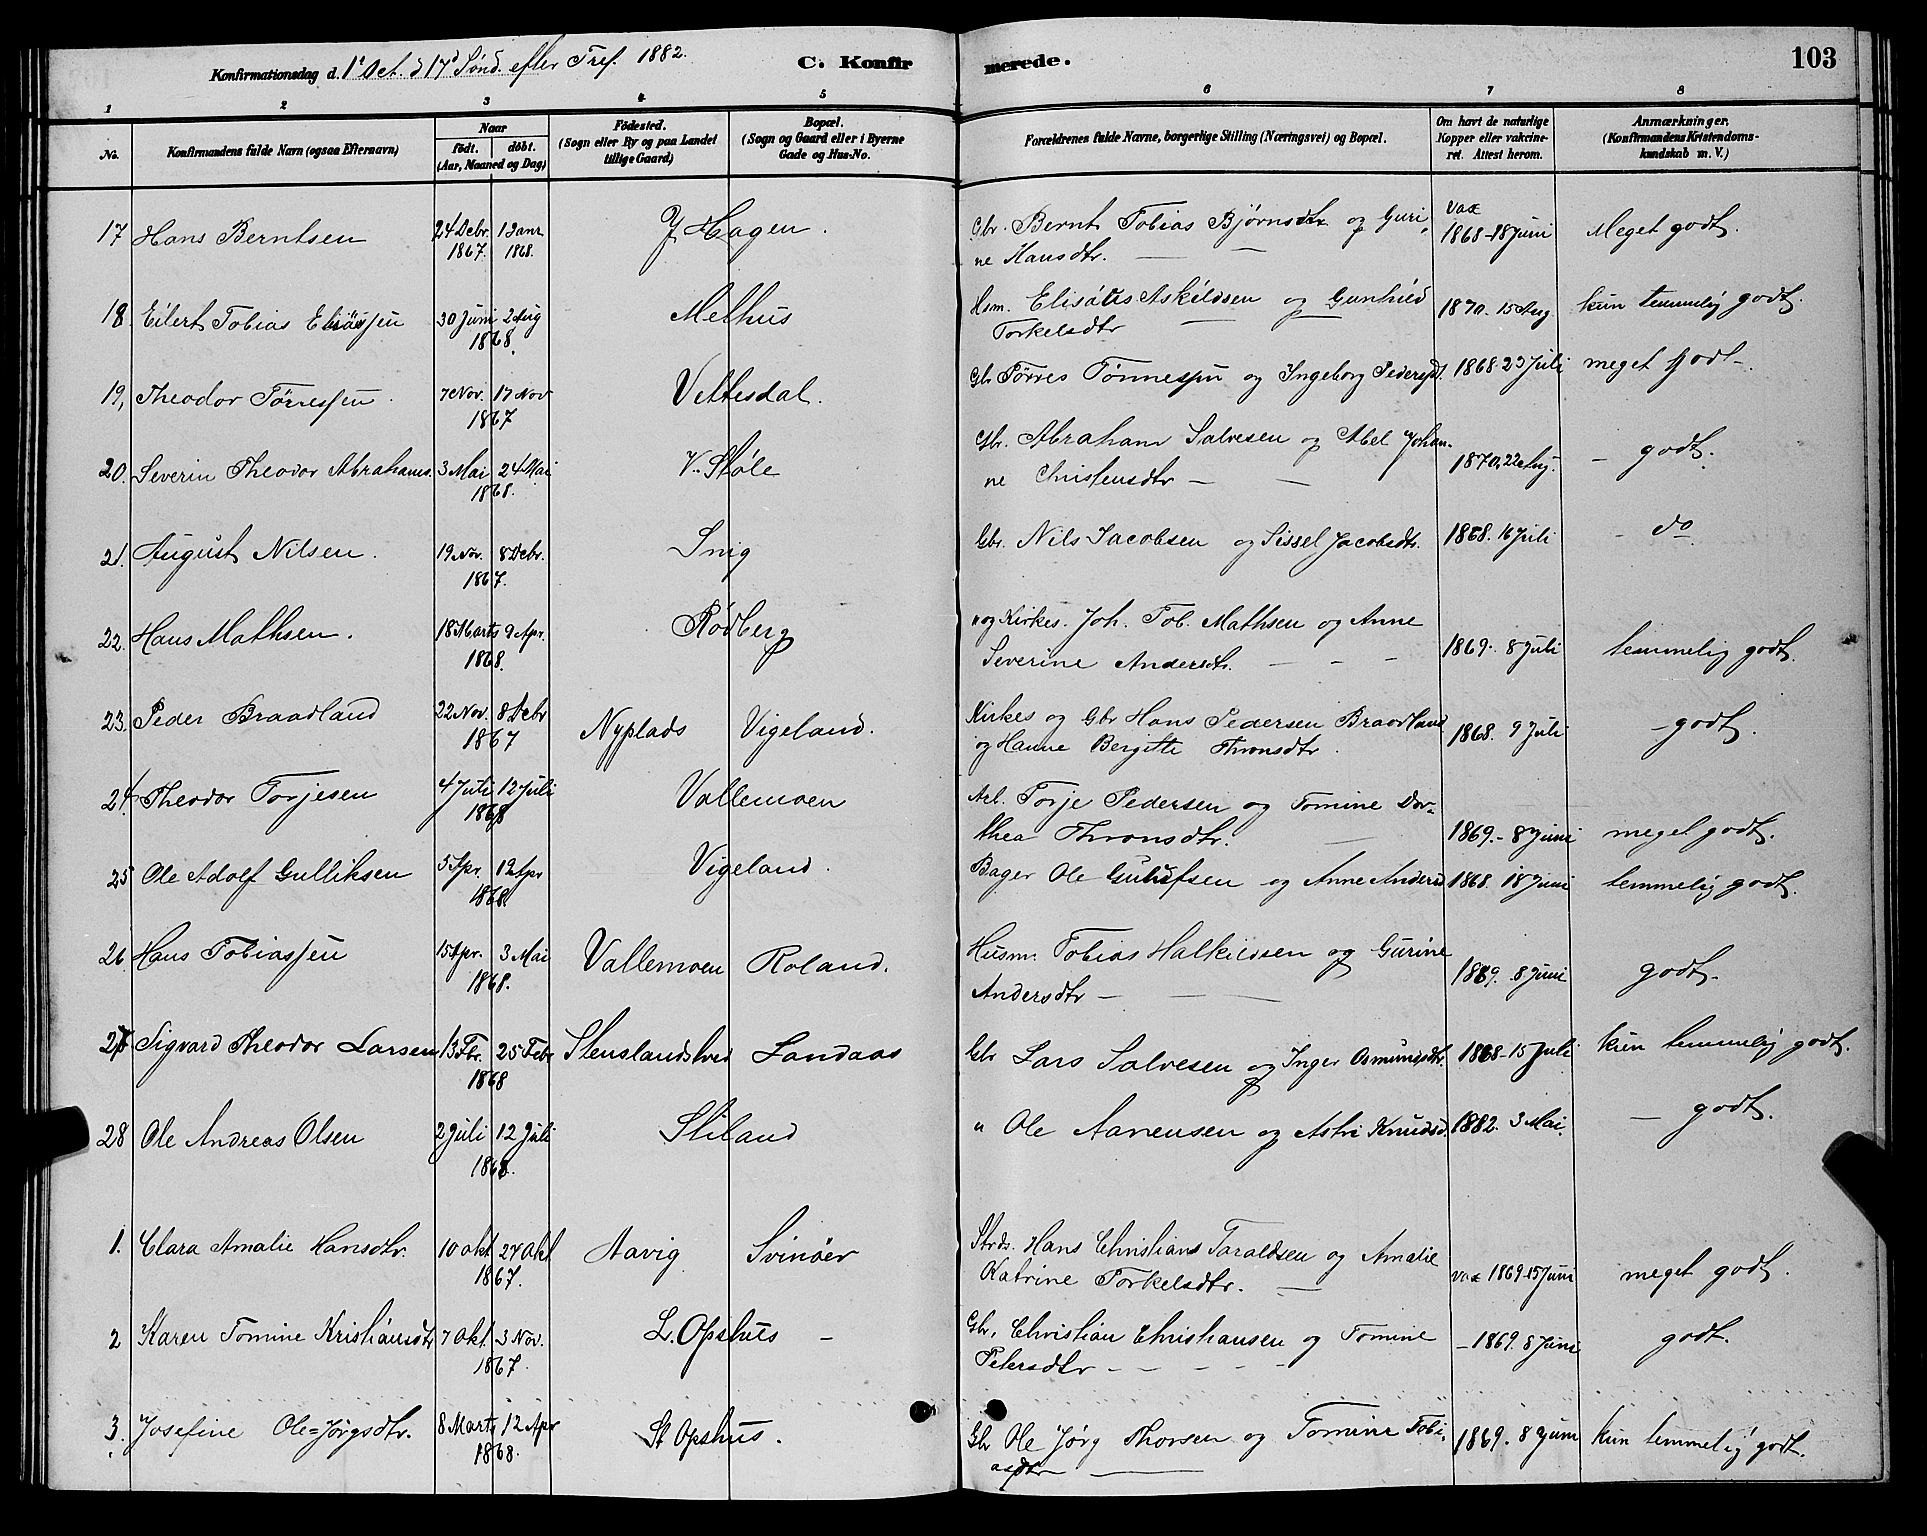 Konfirmationsdag d. 1e Oct. d 17d Sønd. efter Tref. 1882.
C. Konfirmerede.
103
1 2 3 4 5 6 7 8
No.
Konfirmandens fulde Navn (ogsaa Efternavn)
Naar
födt. döbt.
(Aar, Maaned og Dag)
Födested.
(Sogn eller By og paa Landet
tillige Gaard)
Bopæl.
(Sogn og Gaard eller i Byerne
Gade og Hus-No.
Forældrenes fulde Navne, borgerlige Stilling (Næringsvei) og Bopæl.
Om havt de naturlige
Kopper eller vakcine-
ret. Attest herom.
Anmærkninger,
(Konfirmandens Kristendoms-
kundskab m. V.)
17 Hans Berntsen 24 Debr. 1867. 1 Janr. 1868. Y. Hagen.
Gbr. Bernt Tobias Bjørnsdtr og Guri-
ne Hansdtr. — — vax 1868-18 Juni Meget godt.
18. Eilert Tobias Elisæssen 30 Juni 2 Aug 1868. Melhus
Hsm. Elisæus Askildsen og Gunhild
Torkelsdtr — — 1870. 15 Aug. kun temmelig godt.
19, Theodor Törresssen 7 Nov. 17 Nov 1867 Vettesdal.
Gb Törres Tönnessen og Ingeborg Pedersd. 1868 23 Juli meget godt.
20. Severin Theodor Abrahams. 3 Mai 24 Mai 1868. V. Støle
Gbr. Abraham Salvesen og Abel Johan-
ne Christensdtr — — 1870, 22 Aug. — godt.
21. August Nilsen. 19 Nov. 8 Debr. 1867. Snig
Gbr. Nils Jacobsen og Sissel Jacobsdtr. 1868. 16 Juli — do
22. Hans Mathsen. 18 Marts 9 Apr. 1868. Rödberg
" og Kirkes. Joh. Tob. Mathsen og Anne
Severine Andersdtr. — — — 1869. 8 Juli temmelig godt.
23. Peder Braadland 22 Nov. 8 Debr 1867 Nyplads Vigeland.
Kirkes og Gbr Hans Pedersen Braadland
og Hanne Bergitte Thronsdtr. 1868. 9 Juli — godt.
24. Theodor Torjesen 4 Juli 12 Juli 1868 Vallemoen
Arb. Torje Pedersen og Tomine Dor-
thea Thronsdtr. — 1869.- 8 Juni meget godt.
25 Ole Adolf Gulliksen 5 Apr. 12 Apr 1868 Vigeland.
Bager Ole og Anne Andersd 1868. 18 Juni temmelig godt.
26. Hans Tobiassen 15 Apr. 3 Mai 1868. Vallemoen Roland.
Husm. Tobias Halkildsen og Gurine
Andersdtr — — — 1869. 8 Juni godt.
27 Sigvard Theodor Larsen 13 Fbr. 25 Febr 1868 Stenslandshvd Landaas
Gbr Lars Salvesen og Inger Osmundsdtr. 1868-15 Juli kun temmelig godt.
28 Ole Andreas Olsen 2 Juli 12 Juli 1868. Stiland
" Ole Aanensen og Astri Knudsd. 1882. 3 Mai. — godt.
1. Clara Amalie Hansdtr. 10 Okt 27 Okt 1867. Aavig Svinöer
Strds. Hans Christians Taraldsen og Amalie
Katrine Torkelsdtr. — vax 1869-15 Juni meget godt.
2 Karen Tomine Kristiansdtr 7 Okt 3 Nov. 1867. L. Opshus —
Gbr. Christian Christiansen og Tomine
Petersdtr — — — — — 1869. 8 Juni godt.
3. Josefine Ole=Jørgsdtr. 8 Marts 12 Apr 1868. St Opshus.
Gbr Ole Jørg Thorsen og Tomine Tobi-
asdtr — 1869. 8 Juni kun temmelig godt.